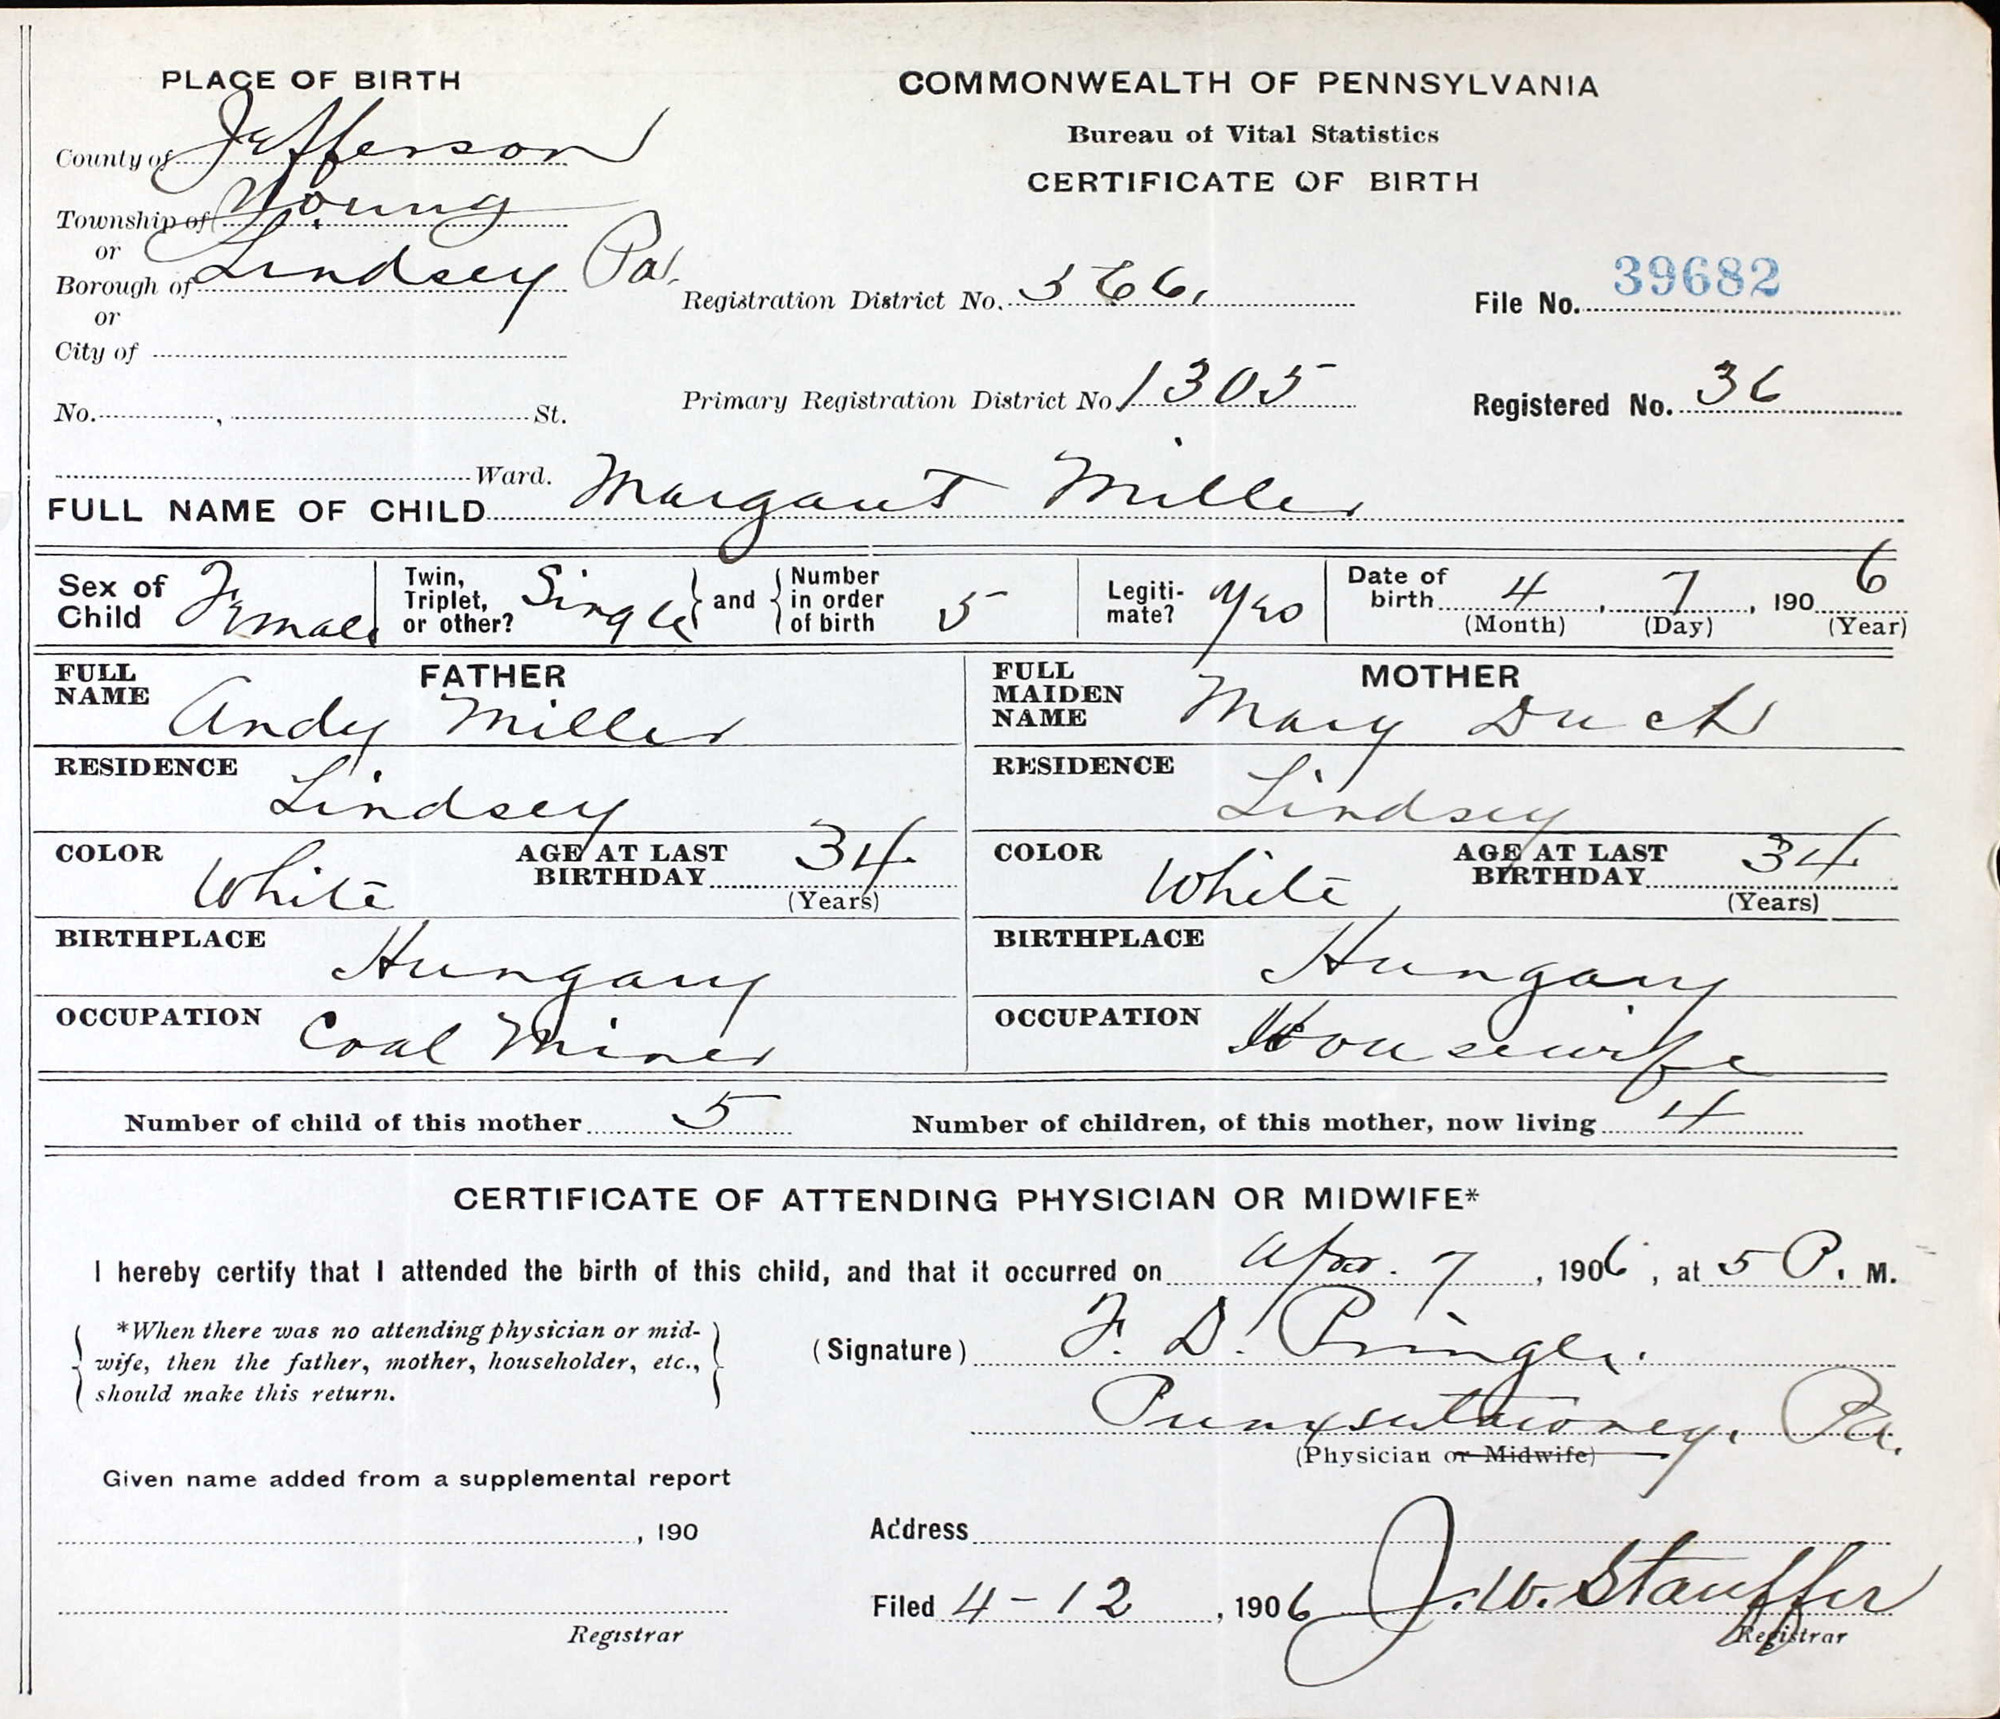 PLACE OF BIRTH
County of Jefferson
Township of Young
or
Borough of Lindsey Pa.
or
City of
No. , St.
Ward.
COMMONWEALTH OF PENNSYLVANIA
Bureau of Vital Statistics
CERTIFICATE OF BIRTH
Registration District No. 366.
File No. 39682
Primary Registration District No. 1305
Registered No. 36
FULL NAME OF CHILD Margaret Miller
Sex of Child Female
Twin, Triplet, or other? Single and Number in order of birth 5
Legiti-mate? Yes
Date of birth 4, 7, 1906
(Month) (Day) (Year)
FATHER
FULL NAME Andy Miller
RESIDENCE Lindsey
COLOR White AGE AT LAST BIRTHDAY 34
(Years)
BIRTHPLACE Hungary
OCCUPATION Coal Miner
MOTHER
FULL MAIDEN NAME Mary
RESIDENCE Lindsey
COLOR White AGE AT LAST BIRTHDAY 34
(Years)
BIRTHPLACE Hungary
OCCUPATION Housewife
Number of child of this mother 5 Number of children, of this mother, now living 4
CERTIFICATE OF ATTENDING PHYSICIAN OR MIDWIFE*
I hereby certify that I attended the birth of this child, and that it occurred on Apr. 7, 1906, at 5 P. M.
*When there was no attending physician or mid-
wife, then the father, mother, householder, etc.,
should make this return.
(Signature) F. D. Pringle.
Punxsutawney, Pa.
(Physician or Midwife)
Given name added from a supplemental report
, 190
Registrar
Address
Filed 4-12, 1906 J. W. Stauffer
Registrar